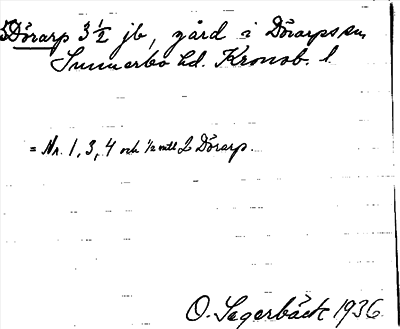 Dörarp 3 1/2 jb, gård i Dörarps sn
Sunnerbo hd. Kronob. l.
= Nr. 1, 3, 4 och 1/2 mtl 2 Dörarp.
O. Sagerbäck 1936.